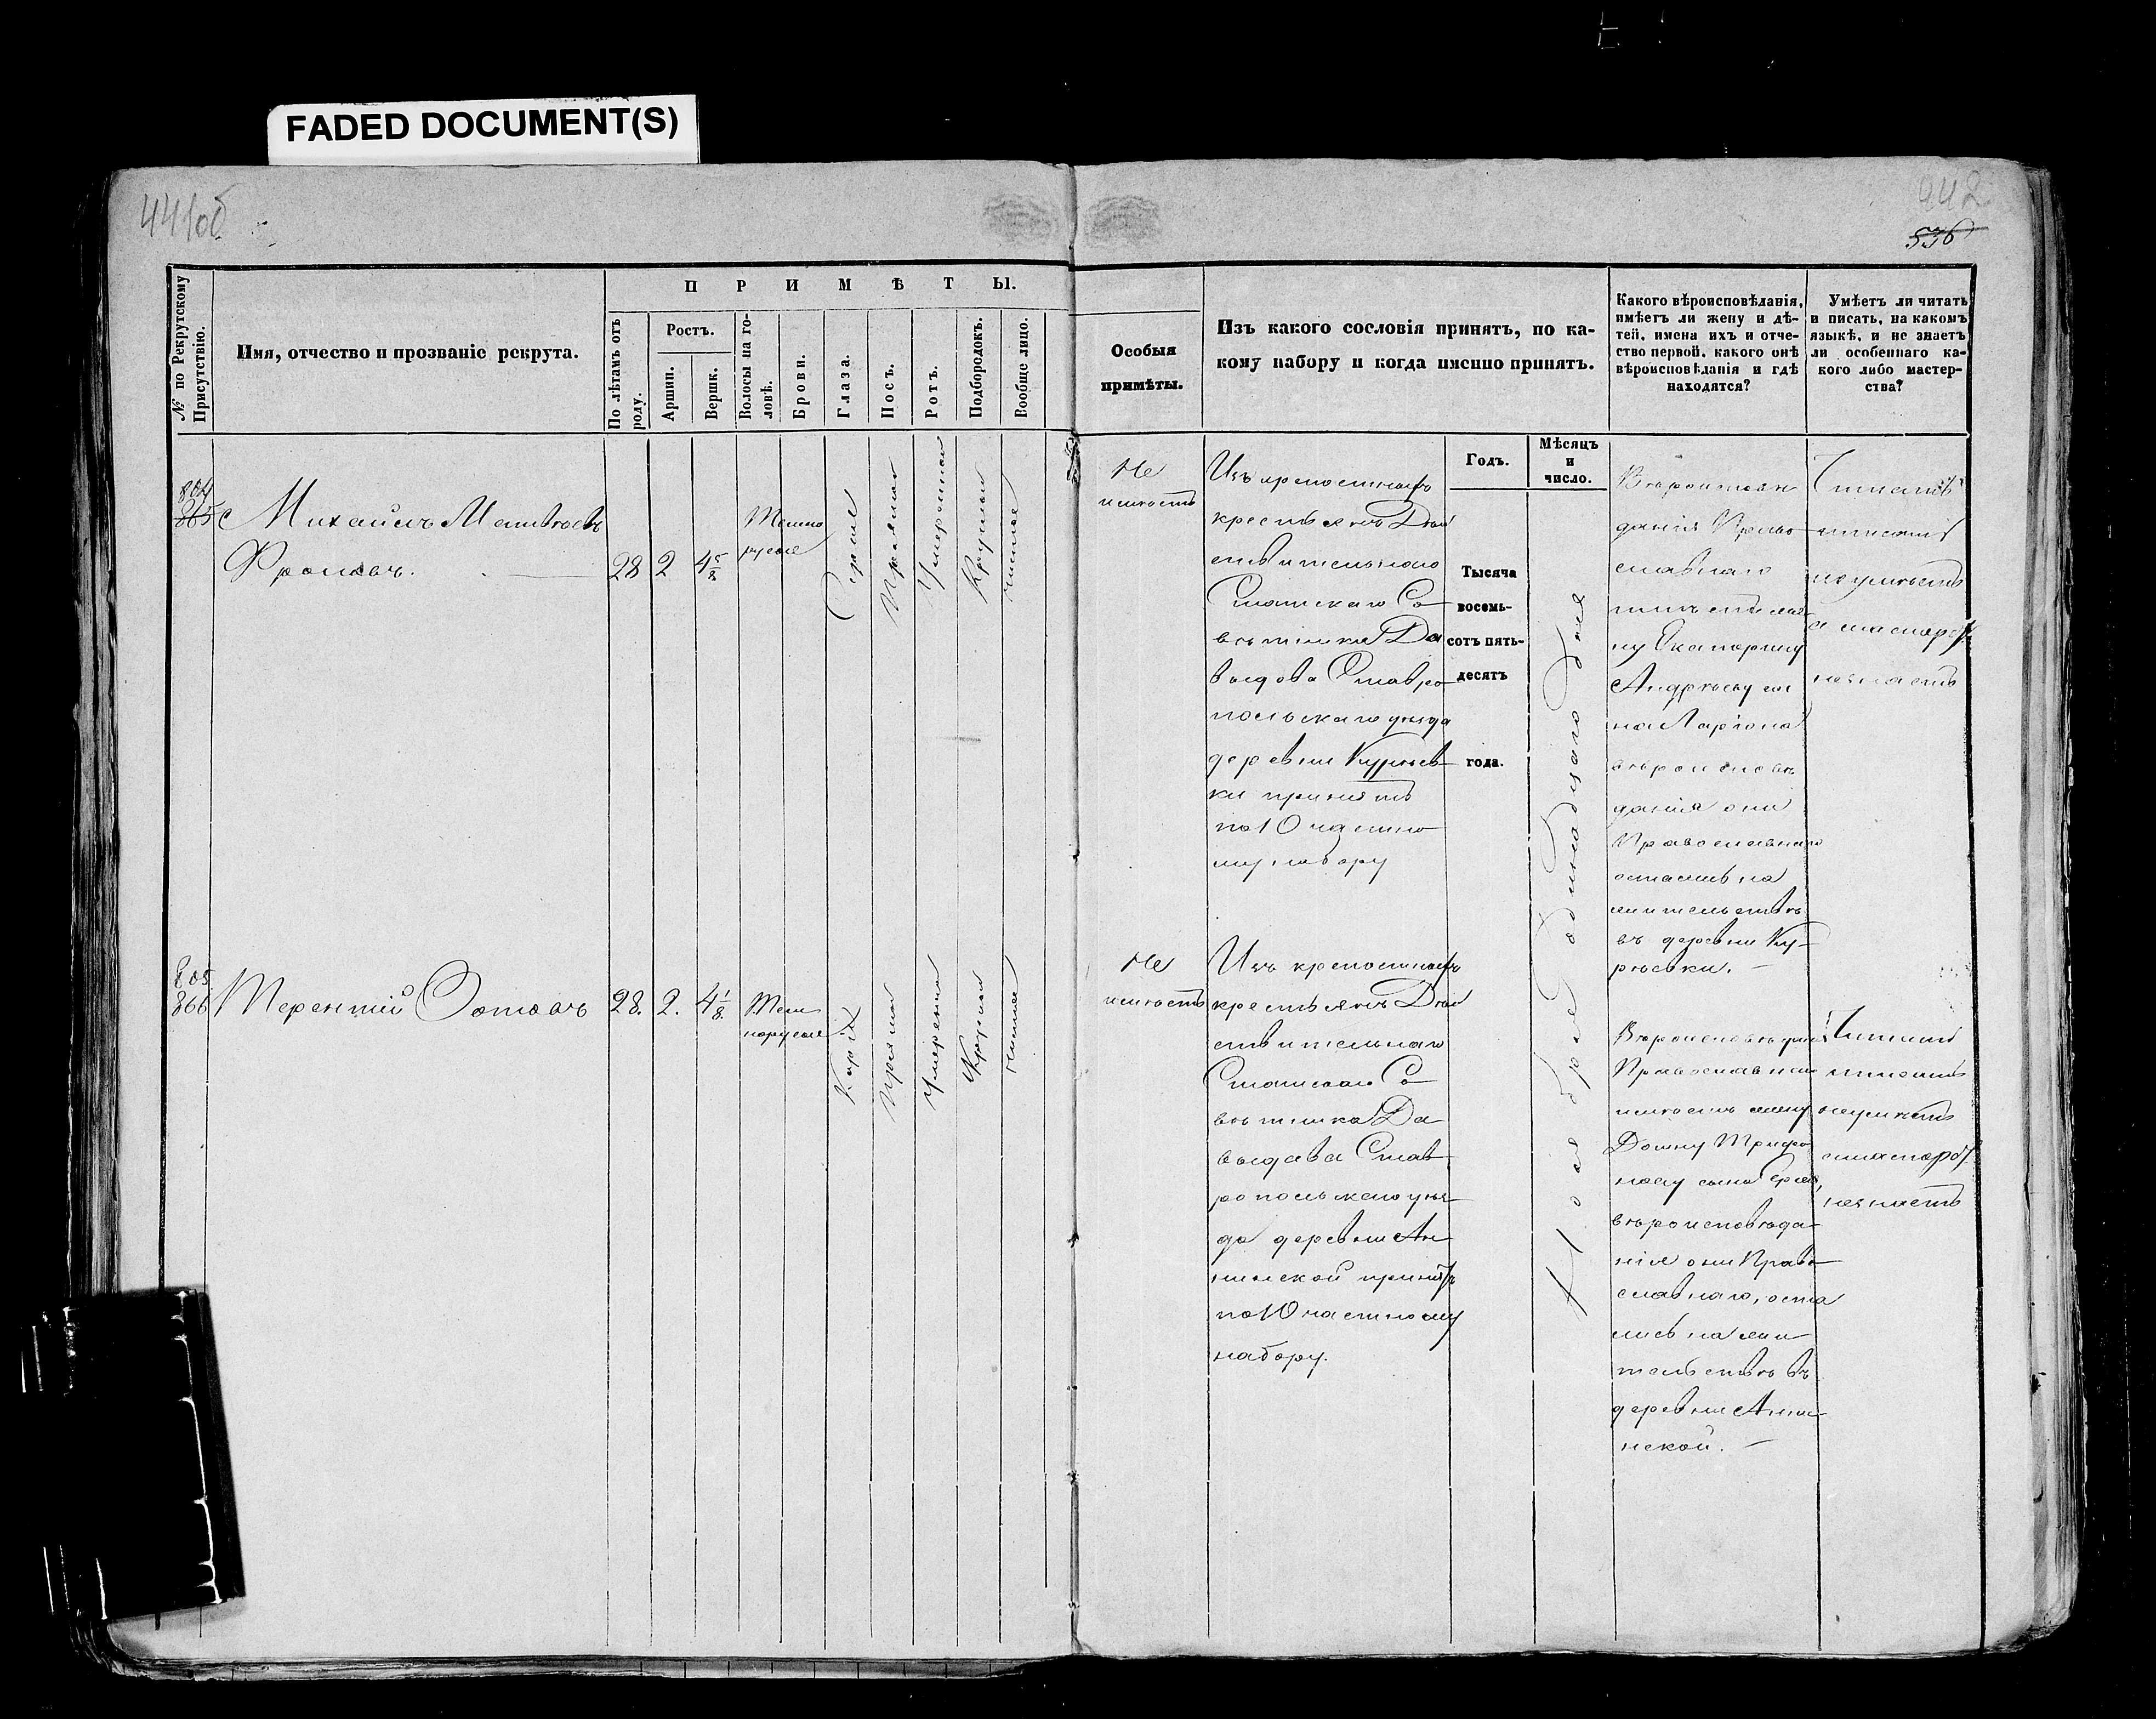 FADED DOCUMENT(S)
441об
442
536
№ по Рекрутскому Присутствію.
Имя, отчество и прозваніе рекрута.
П Р И М Ѣ Т Ы.
По лѣтамъ отъ роду.
Ростъ.
Аршин.
Вершк.
Волосы на головѣ.
Брови.
Глаза.
Носъ.
Ротъ.
Подбородокъ.
Вообще лицо.
Особыя
примѣты.
Изъ какого сословія принятъ, по ка-
кому набору и когда именно принятъ.
Какого вѣроисповѣданія,
имѣетъ ли жену и дѣ-
тей, имена ихъ и отче-
ство первой, какого онѣ
вѣроисповѣданія и гдѣ
находятся?
Умѣетъ ли читать
и писать, на какомъ
языкѣ, и не знаетъ
ли особеннаго ка-
кого либо мастер-
ства?
Годъ.
Мѣсяцъ
и
число.
Тысяча
восемь-
сотъ пять-
десятъ
года.
Ноября одинадцатаго дня
804
865
Михаилъ Матвѣевъ
28 2 4 5/8
Темно
русые
Серые
Прямой
Умеренной
Круглой
чистое
Не
имѣетъ
Изъ крепостныхъ
крестьянъ Дѣй
ствительнаго
Статскаго Со
вѣтника Да
выдова Ставро
польскаго уезда
деревни Курѣев
ки принятъ
по 10 частно
му набору
Вѣроисповѣ
данія Право
славнаго
ну Екатерину
Андрѣеву сы
на Ларіона
вѣроисповѣ
данія они
Православнаго
остались на
жительствѣ
въ деревни Ку-
рѣевки.
Читать
писать
неумѣетъ
и мастерст
незнаетъ
805
866
Терентій
28. 2. 4 1/8
Тем
норусые
Каріе
Прямой
Умеренной
Круглой
чистое
Не
имѣетъ
Изъ крепостныхъ
крестьянъ Дѣй
ствительнаго
Статскаго Со
вѣтника Да
выдова Став
ропольскаго уѣз
да деревни Ан
нинской принятъ
по 10 частному
набору.
Вѣроисповѣдания
Православнаго
имѣетъ жену
Домну Трифо
нову сына
вѣроисповѣда
нія они Право
славнаго, оста
лись на жи
тельствѣ въ
деревни Анни
нской.
Читать
писать
неумѣетъ
мастерст
незнаетъ